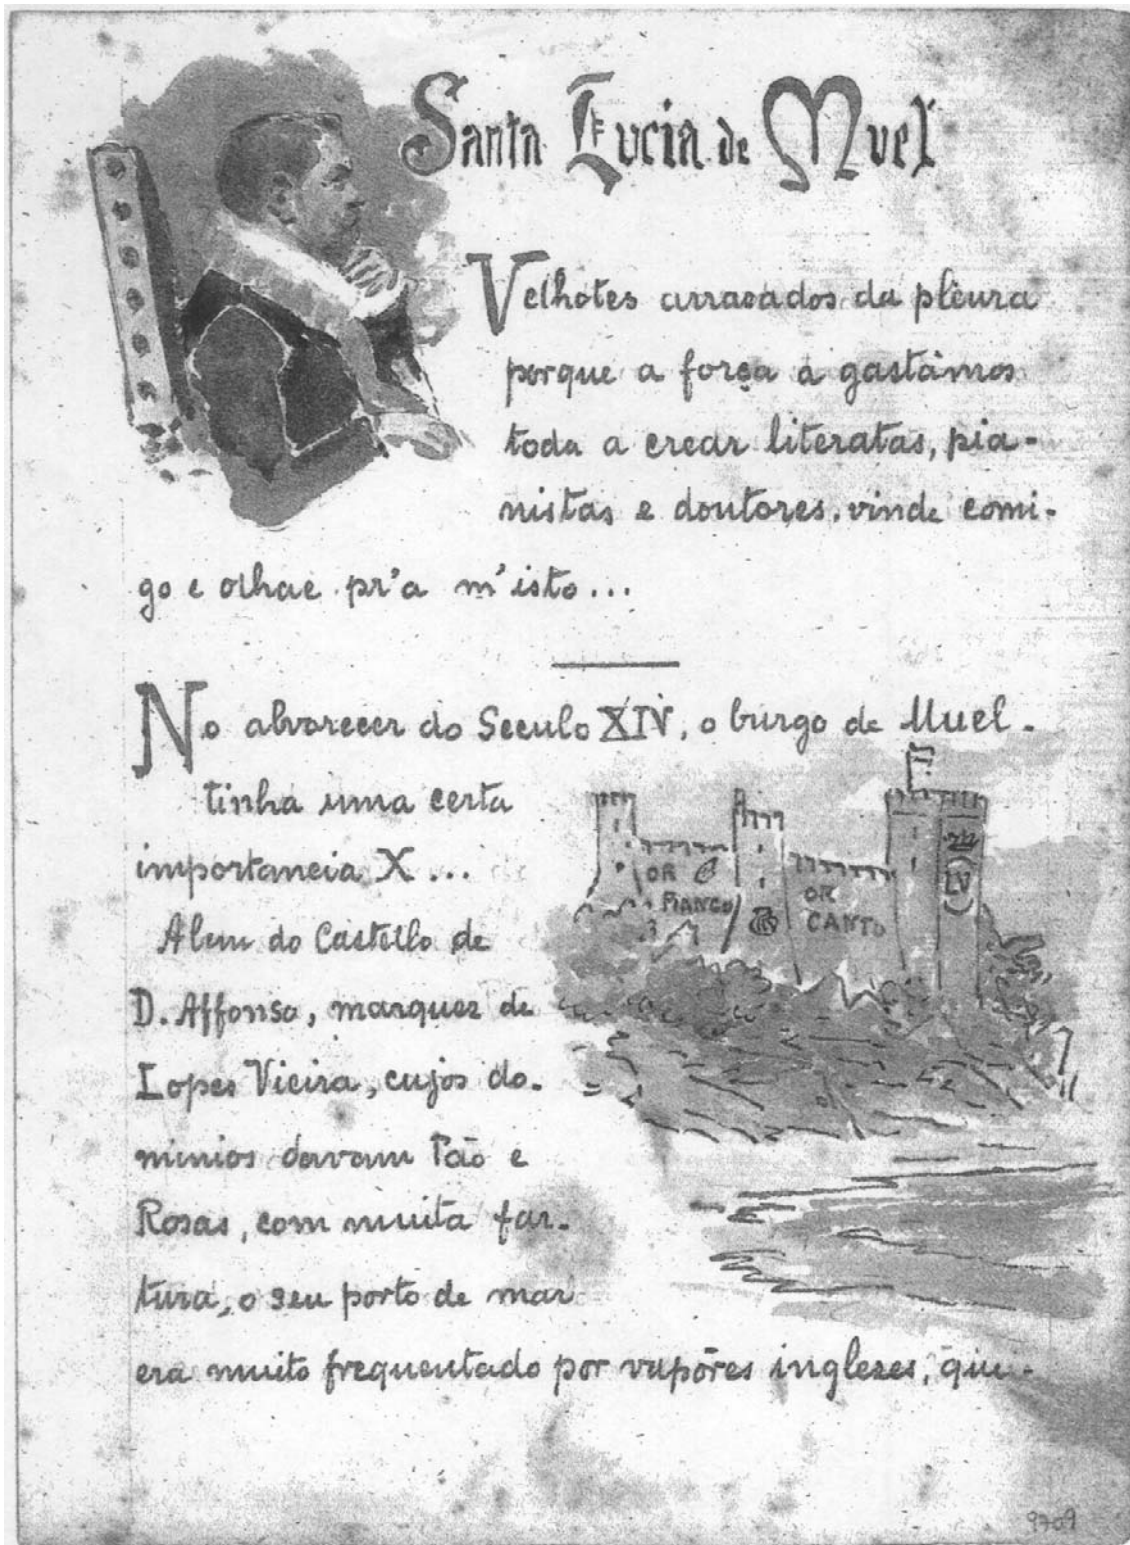 Santa Lucia de Muel
Velhotes arrasados da pleura
porque a força a gastámos
toda a crear literatas, pia-
nistas e doutores, vinde comi-
go e olhae pr'a m'isto...
No alvorecer do Seculo XIV, o burgo de Muel
tinha uma certa
importancia X...
OR
PIANCO
OR
CANTO
LV
Alem do Castello de
D. Affonso, marquez de
Lopes Vieira, cujos do-
minios davam Pão e
Rosas, com muita far-
tura, o seu porto de mar
era muito frequentado por vapôres inglezes, que
9709